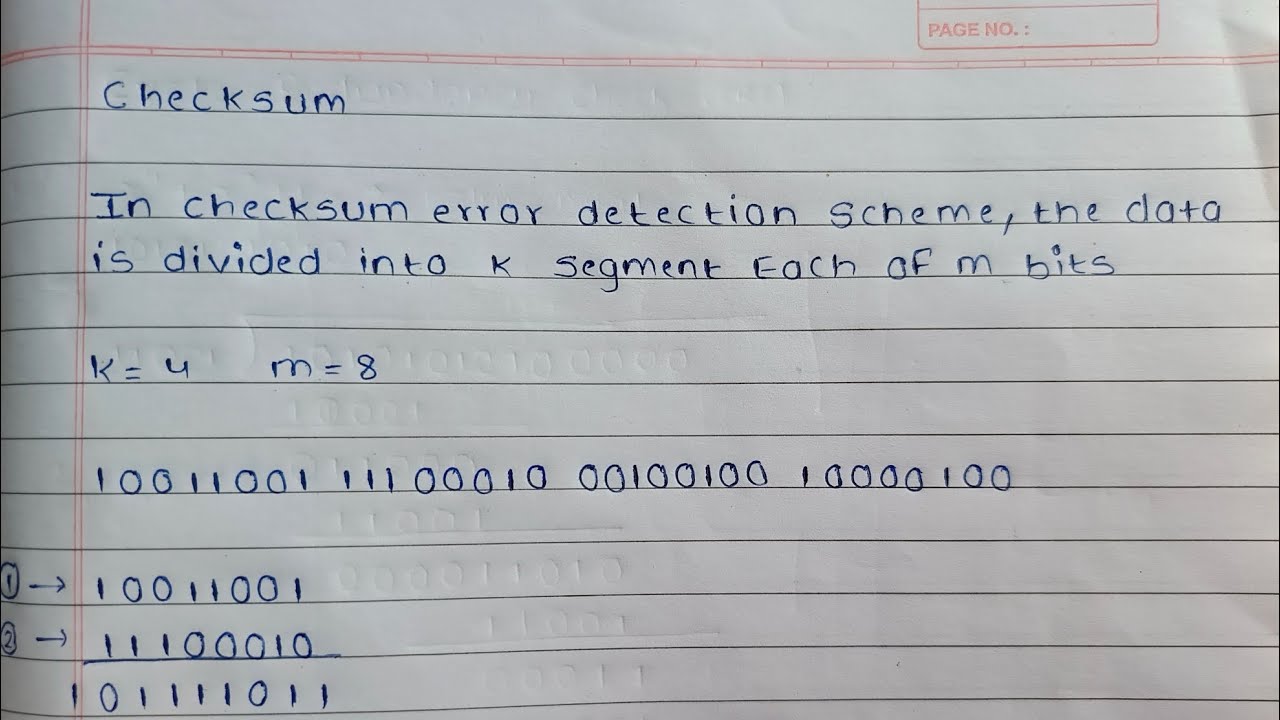 PAGE NO. :
Checksum
In checksum error detection scheme, the data
is divided into k segment Each of m bits
k = 4 m = 8
10011001 11100010 00100100 10000100
① → 10011001
② → 11100010
101111011